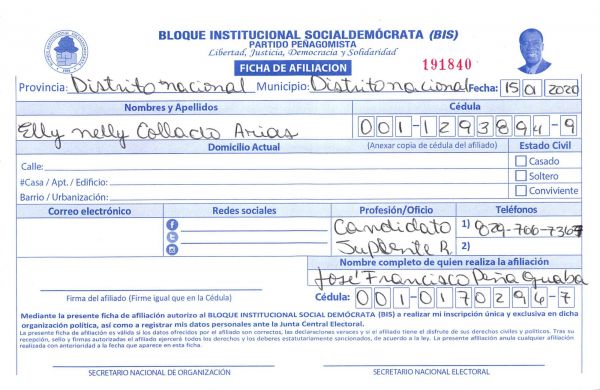 BLOQUE INSTITUCIONAL SOCIALDEMÓCRATA (BIS)
PARTIDO PEÑAGOMISTA
Libertad, Justicia, Democracia y Solidaridad
FICHA DE AFILIACION
191840
Provincia: Distrito nacional Municipio: Distrito nacional Fecha: 15 01 2020
Nombres y Apellidos Cédula
Elly nelly Collado Arias 001-1293894-9
Domicilio Actual (Anexar copia de cédula del afiliado) Estado Civil
Calle: Casado
#Casa / Apt. / Edificio: Soltero
Barrio / Urbanización: Conviviente
Correo electrónico Redes sociales Profesión/Oficio Teléfonos
Candidato 1) 829-766-7367
Suplente R. 2)
Nombre completo de quien realiza la afiliación
José Francisco Peña Guaba
Firma del afiliado (Firme igual que en la Cédula) Cédula: 001-0170296-7
Mediante la presente ficha de afiliación autorizo al BLOQUE INSTITUCIONAL SOCIAL DEMÓCRATA (BIS) a realizar mi inscripción única y exclusiva en dicha
organización política, así como a registrar mis datos personales ante la Junta Central Electoral.
La presente ficha de afiliación es válida si los datos ofrecidos por el afiliado son correctos, las declaraciones veraces y si el afiliado tiene el disfrute de sus derechos civiles y políticos. Tras su
recepción, sello y firmas autorizadas el afiliado ejercerá todos los derechos y los deberes estatutariamente sancionados, de acuerdo a la ley. La presente afiliación anula cualquier afiliación
realizada con anterioridad a la fecha que aparece en esta ficha.
SECRETARIO NACIONAL DE ORGANIZACIÓN SECRETARIO NACIONAL ELECTORAL